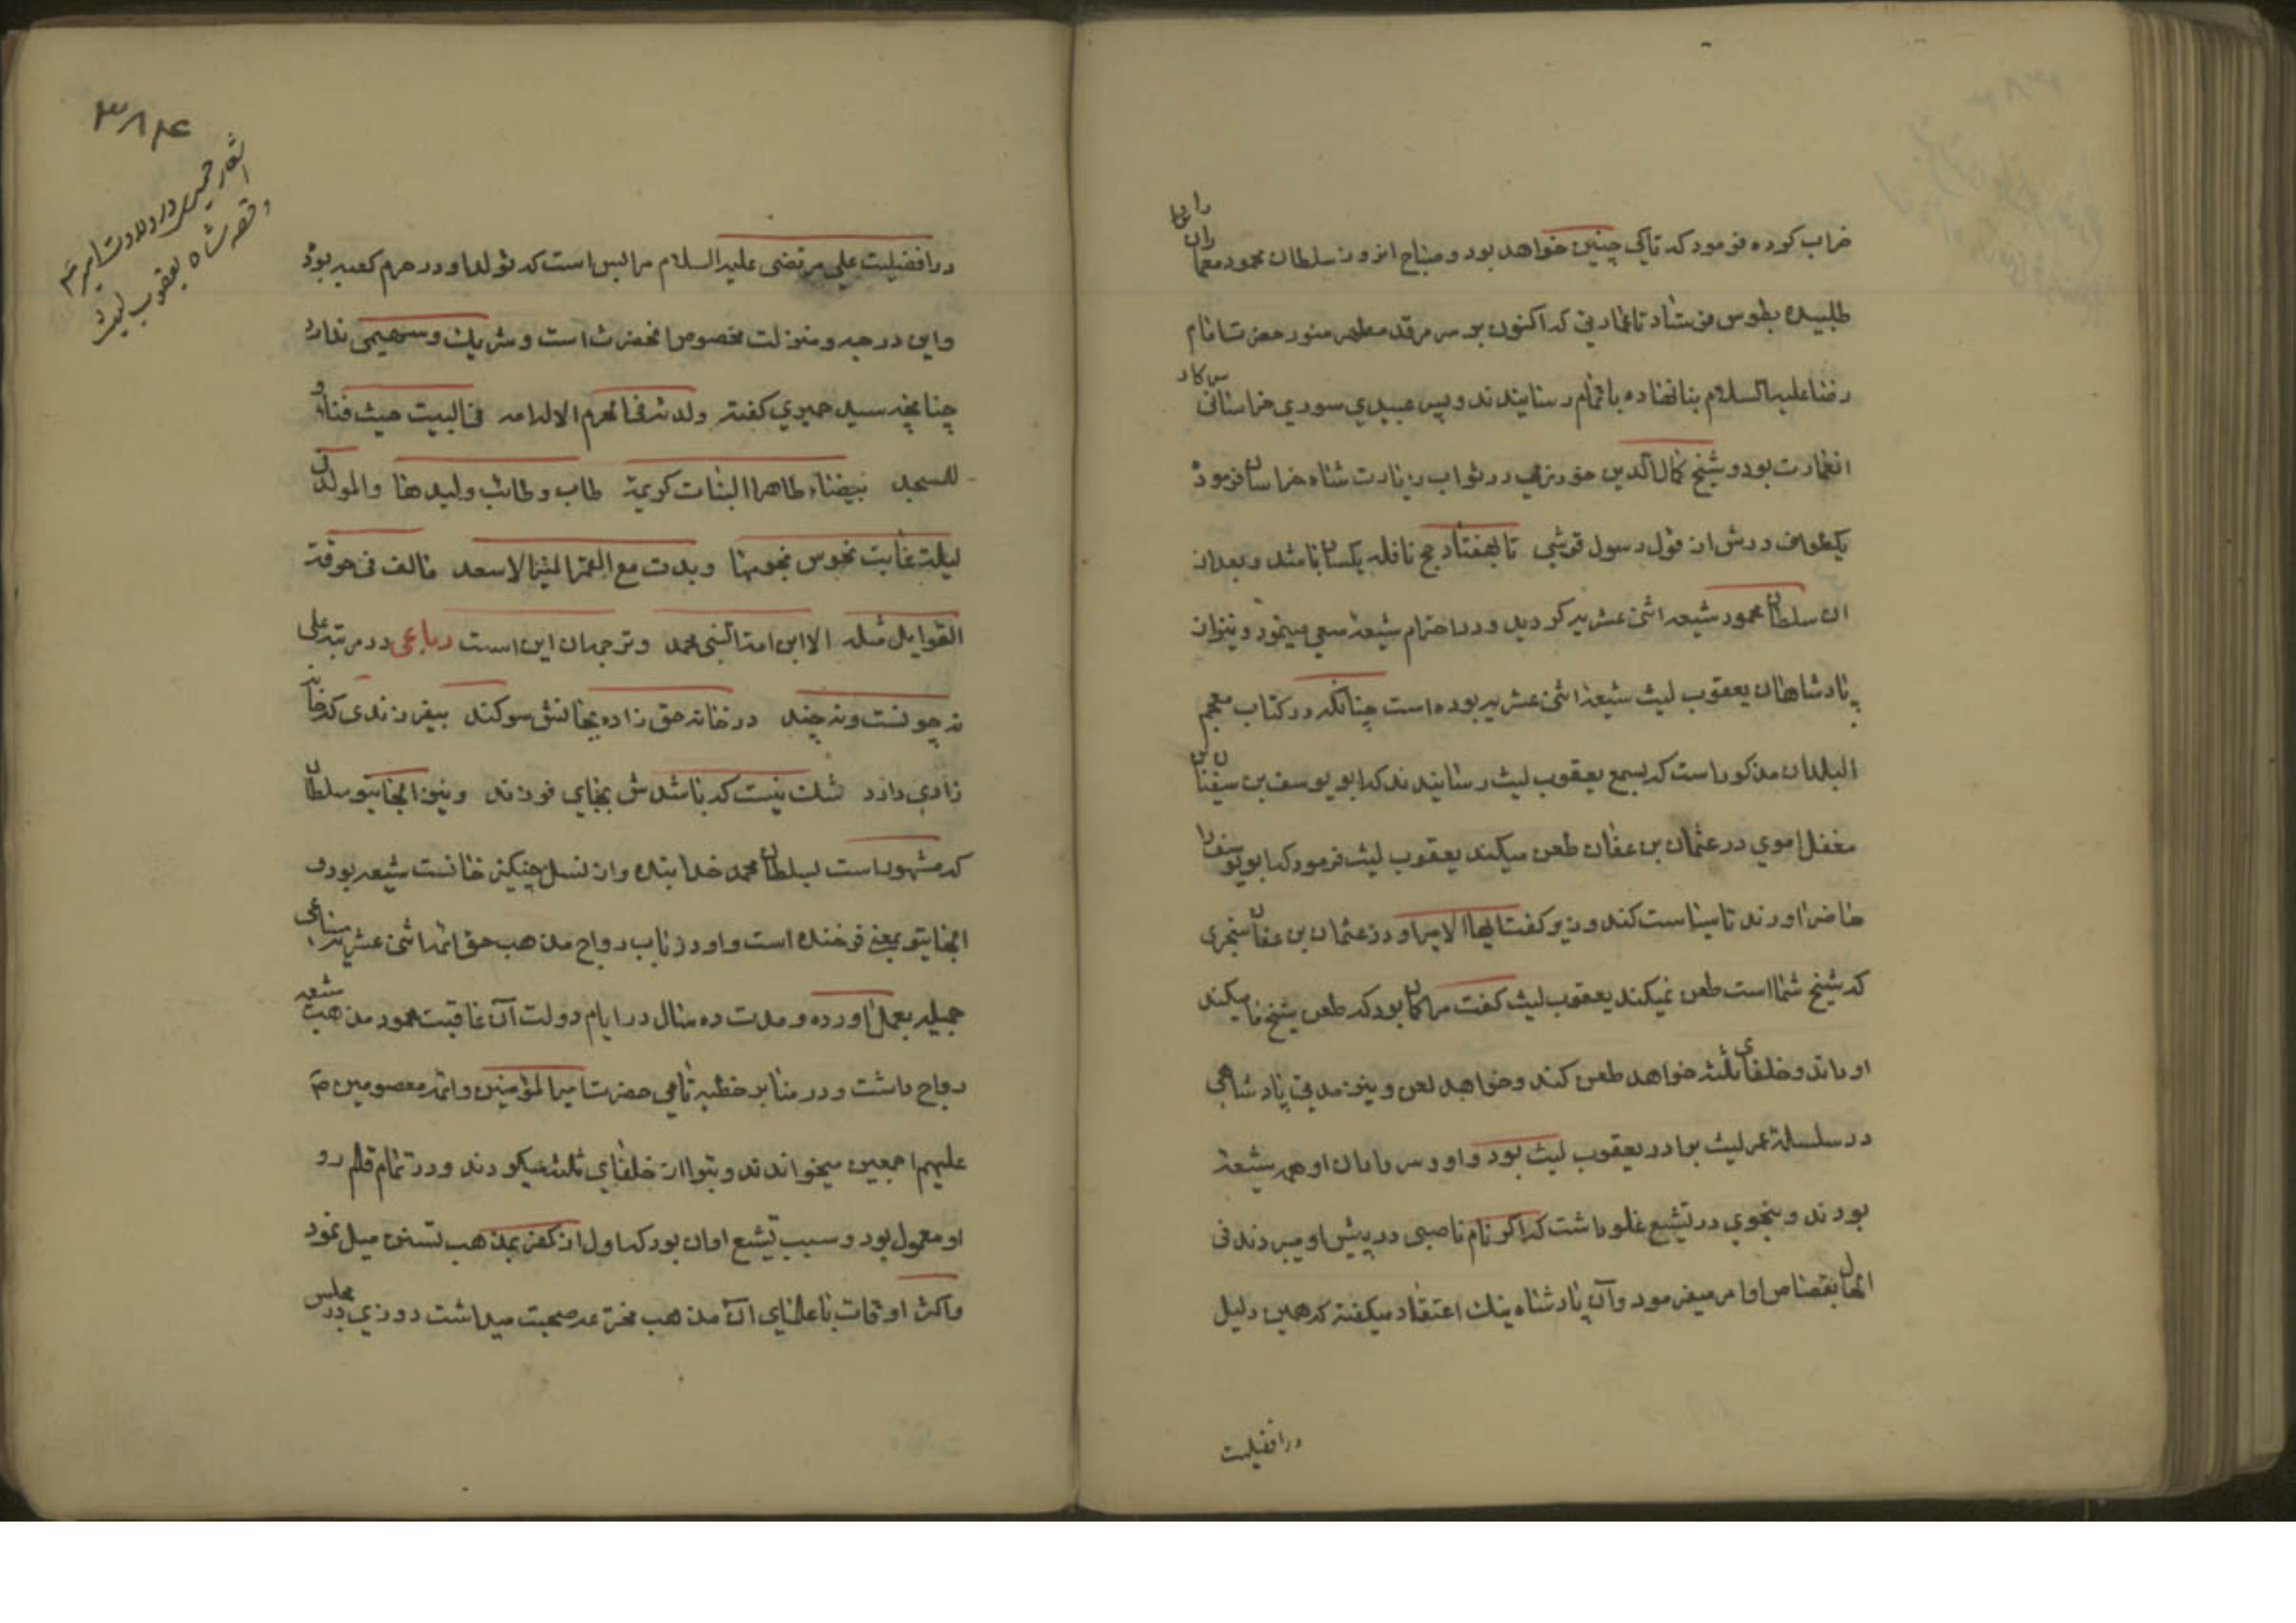 خراب کرده فرمود که تا کی چنین خواهد بود و صباح انروز سلطان محمود معماران را
طلبیده بطوس فرستاد تا عمارتی که اکنون بر سر مرقد مطهر منور حضرت امام
رضا علیه السلام بنا نهاده باتمام رسانیدند و پس عبیدی سوری خراسانی سرکار
انعمارت بود و شیخ کمال الدین خوارزمی در ثواب زیارت شاه خراسان فرمود
یکطواف درش از قول رسول قرشی تا بهفتاد حج نافله یکسان باشد و بعد از
ان سلطان محمود شیعه اثنی عشریه کردید و در احترام شیعه سعی مینمود و نیز از
پادشاهان یعقوب لیث شیعه اثنی عشریه بوده است چنانکه در کتاب معجم
البلدان مذکور است که بسمع یعقوب لیث رسانیدند که ابو یوسف بن سفیان
مغفل اموی در عثمان بن عفان طعن میکند یعقوب لیث فرمود که ابو یوسف را
حاضر اورند تا سیاست کند وزیر کفت ایها الامیر او در عثمان بن عفان سنجری
که شیخ شما است طعن نمیکند یعقوب لیث کفت مرا کمان بود که طعن شیخ ما میکند
او داند و خلفای ثلثه خواهد طعن کند و خواهد لعن و نیز مدتی پادشاهی
در سلسلة عمر لیث برادر یعقوب لیث بود و او و سرداران او همه شیعه
بودند و بنحوی در تشیع غلو داشت که اکر نام ناصبی در پیش او میبردند فی
الحال بقصاص او امر میفرمود و آن پادشاه نیک اعتقاد میکفته که همین دلیل
در افضلیت
۳۸۴
اشعار حمیری در ولادت امیر ع
و قصه شاه یعقوب لیث
در افضلیت علی مرتضی علیه السلام مرا بس است که تولد او در حرم کعبه بود
و این درجه و منزلت مخصوص انحضرت است و شریک و سهیمی ندارد
چنانچه سید حمیری کفته ولدته فی الحرم الاله امه فی البیت حیث فناؤه
للمسجد بیضاء طاهرا الثیاب کریمة طاب و طابت ولیدها والمولد فی
لیلة غابت نحوس نجومها وبدت مع القمر المنیر الاسعد مالف فی خرقة
القوابل مثله الا ابن امنة النبی محمد و ترجمه ان این است رباعی در مرتبه علی
نه چونست و نه چند در خانه حق زاده بجانش سوکند بیفرزندی که خانه
زادی دارد شک نیست که باشدش بجای فرزند و نیز الجایتو سلطان
که مشهور است بسلطان محمد خدابنده و از نسل چنکیز خانست شیعه بود و
الجایتو بمعنی فرخنده است و او در باب رواج مذهب حق ائمه اثنی عشریه مساعی
جمیله بعمل اورده و مدت ده سال در ایام دولت آن عاقبت محمود مذهب شیعه
رواج داشت و در منابر خطبه نامی حضرت امیر المؤمنین و ائمه معصومین ص
علیهم اجمعین میخواندند و تبرا از خلفای ثلثه میکردند و در تمام قلم رو
او معمول بود و سبب تشیع او ان بود که اول از کفر بمذهب تسنن میل نمود
و اکثر اوقات با علمای ان مذهب مخترعه صحبت میداشت روزی در مجلس